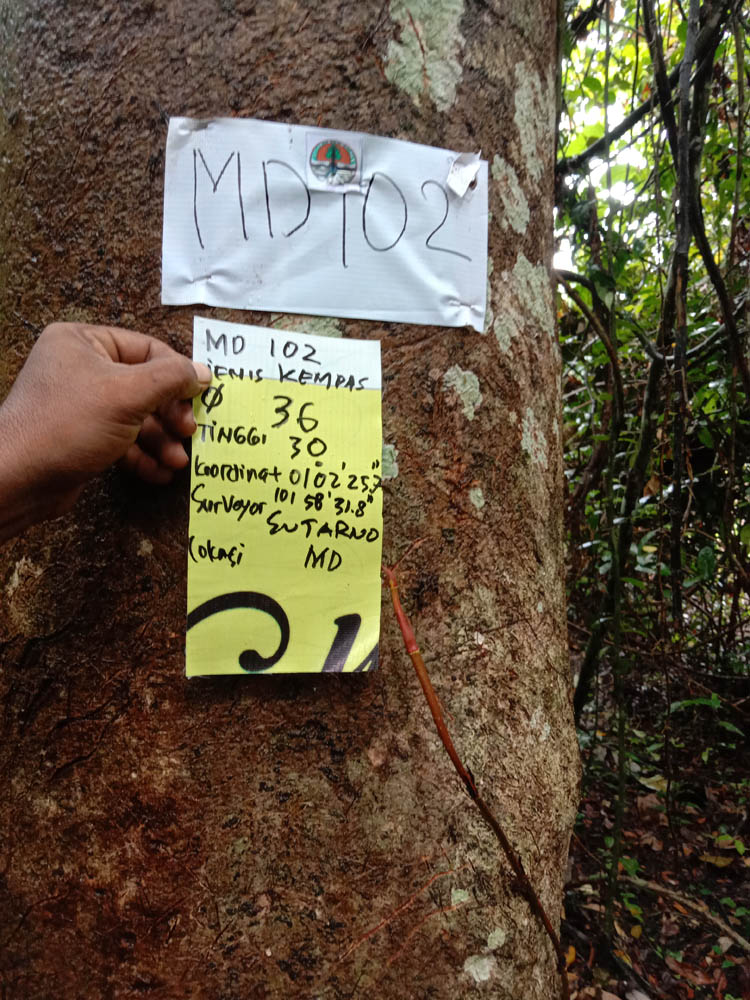 MD 102
MD 102
JENIS KEMPAS
Ø 36
TINGGI 30
Koordinat 01°02'25,7"
101 58'31.8"
Surveyor SUTARNO
Lokasi MD